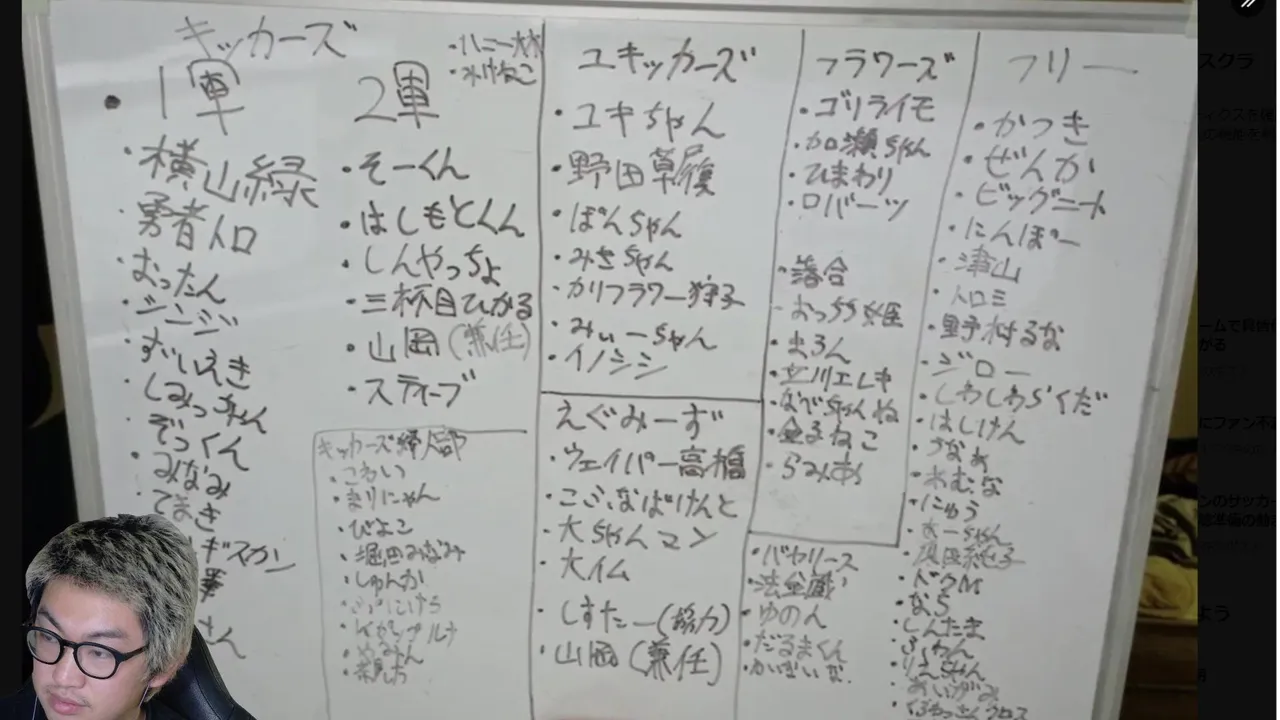 キッカーズ
1軍
横山緑
勇者トロ
おったん
シンジ
ずいえき
しみっちゃん
ぞっくん
みなみ
てまき
ギスカン
さん
・ハニー木木
2軍
・そーくん
・はしもとくん
・しんやっちょ
・三杯目ひかる
・山岡(兼任)
・スティーブ
キッカーズ婦人部
・こわい
・まりにゃん
・ぴよこ
・堀田みなみ
・しゅんか
ユキッカーズ
・ユキちゃん
・野田草履
・ぽんちゃん
・みさちゃん
・カリフラワー狩子
・みぃーちゃん
・イノシシ
えぐみーず
・ウェイパー高橋
・こふなばけんと
・大ちゃんマン
・大イム
・しすたー(協力)
・山岡(兼任)
フラワーズ
・ゴリライモ
・加瀬ちゃん
・ひまわり
・ロバーツ
・落合
・おっちち姫
・まろん
・立川エレキ
・なべちゃんね
・金子ねこ
・らみあ
・バヤリース
・法金蔵
・ゆのん
・だるまくん
フリー
・かつき
・ぜんか
・ビッグニート
・にんぽー
・津山
・トロミ
・野村るな
・ジロー
・しわしわらくだ
・はしけん
・うなぁ
・れむな
・にゅう
・ドクM
・なら
・しんたま
・ふわん
・りえちゃん
・あいがみ